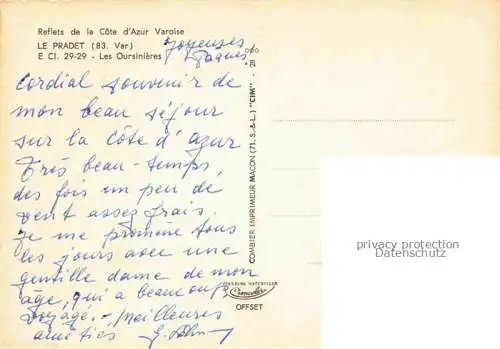 Reflets de la Côte d'Azur Varoise
LE PRADET (83. Var)
E Cl. 29-29 - Les Oursinières
Joyeuses
Pâques
Cordial souvenir de
mon beau séjour
sur la côte d'azur
Très beau-temps,
des fois un peu de
vent assez frais,
je me promène tous
les jours avec une
gentille dame de mon
âge, qui a beaucoup
voyagé. - Meilleures
amitiés
COMBIER IMPRIMEUR MACON (71. S.-&-L.) "CIM"
COULEURS NATURELLES
Combier
OFFSET
privacy protection
Datenschutz